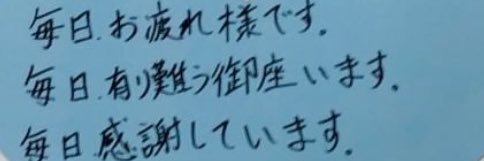 毎日.お疲れ様です.
毎日.有り難う御座います.
毎日感謝しています.